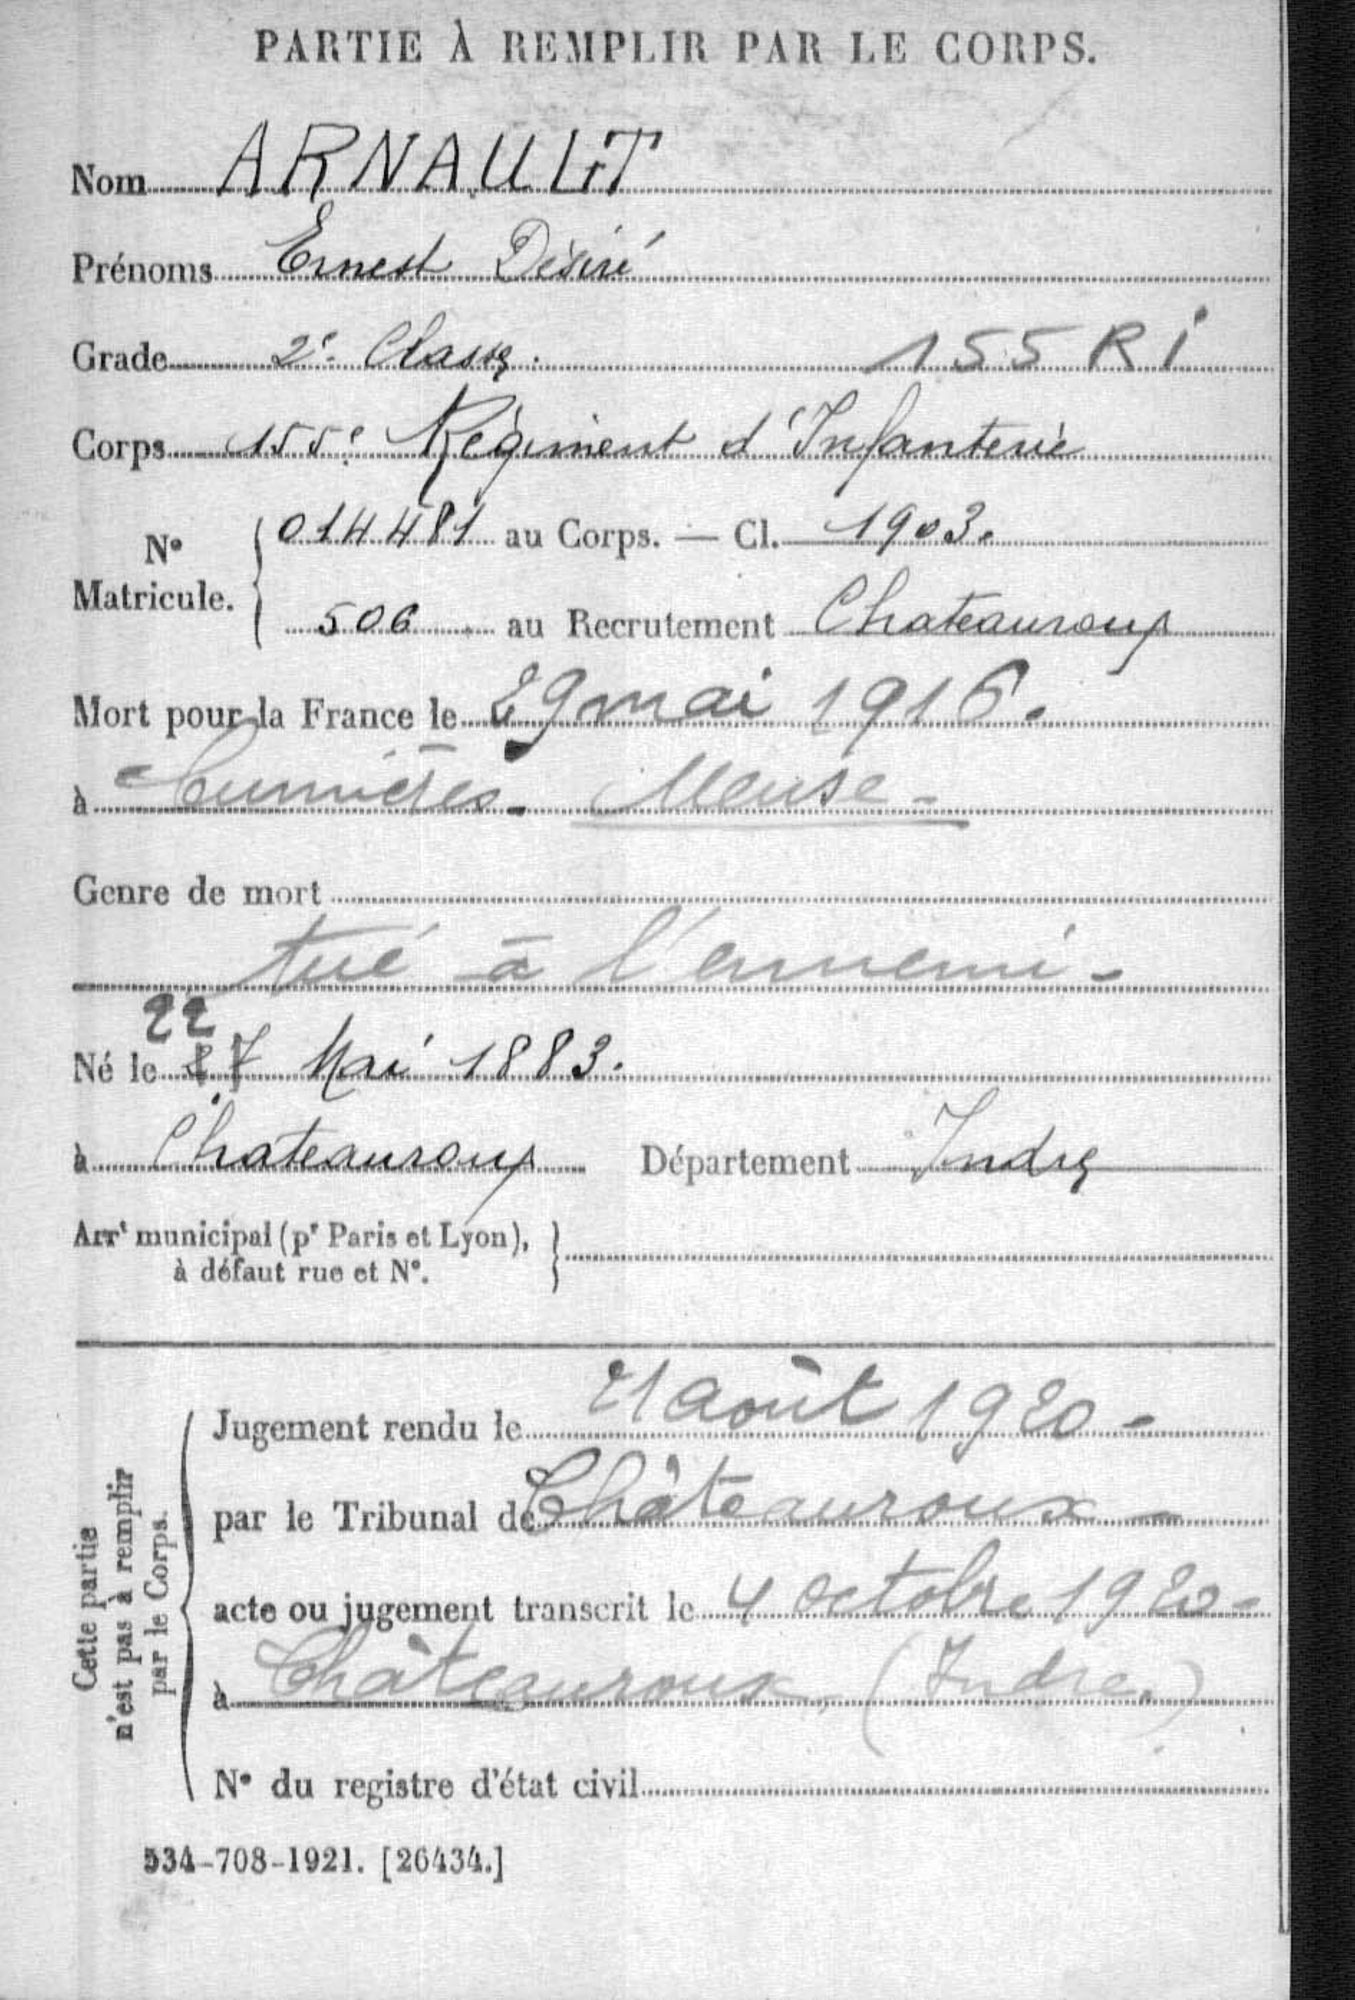 PARTIE À REMPLIR PAR LE CORPS.
Nom ARNAULT
Prénoms Ernest Désiré
Grade 2e Classe. 155 RI
Corps 155e Régiment d'Infanterie
No Matricule. 014481 au Corps. — Cl. 1903.
506 au Recrutement Chateauroux
Mort pour la France le 29 mai 1916.
à Cumières - Meuse -
Genre de mort
tué à l'ennemi -
22
Né le 27 Mai 1883.
à Chateauroux Département Indre
Arrt municipal (pr Paris et Lyon),
à défaut rue et No.
Cette partie
n'est pas à remplir
par le Corps.
Jugement rendu le 21 août 1920 -
par le Tribunal de Châteauroux -
acte ou jugement transcrit le 4 octobre 1920 -
à Châteauroux (Indre.)
No du registre d'état civil
534-708-1921. [26434.]